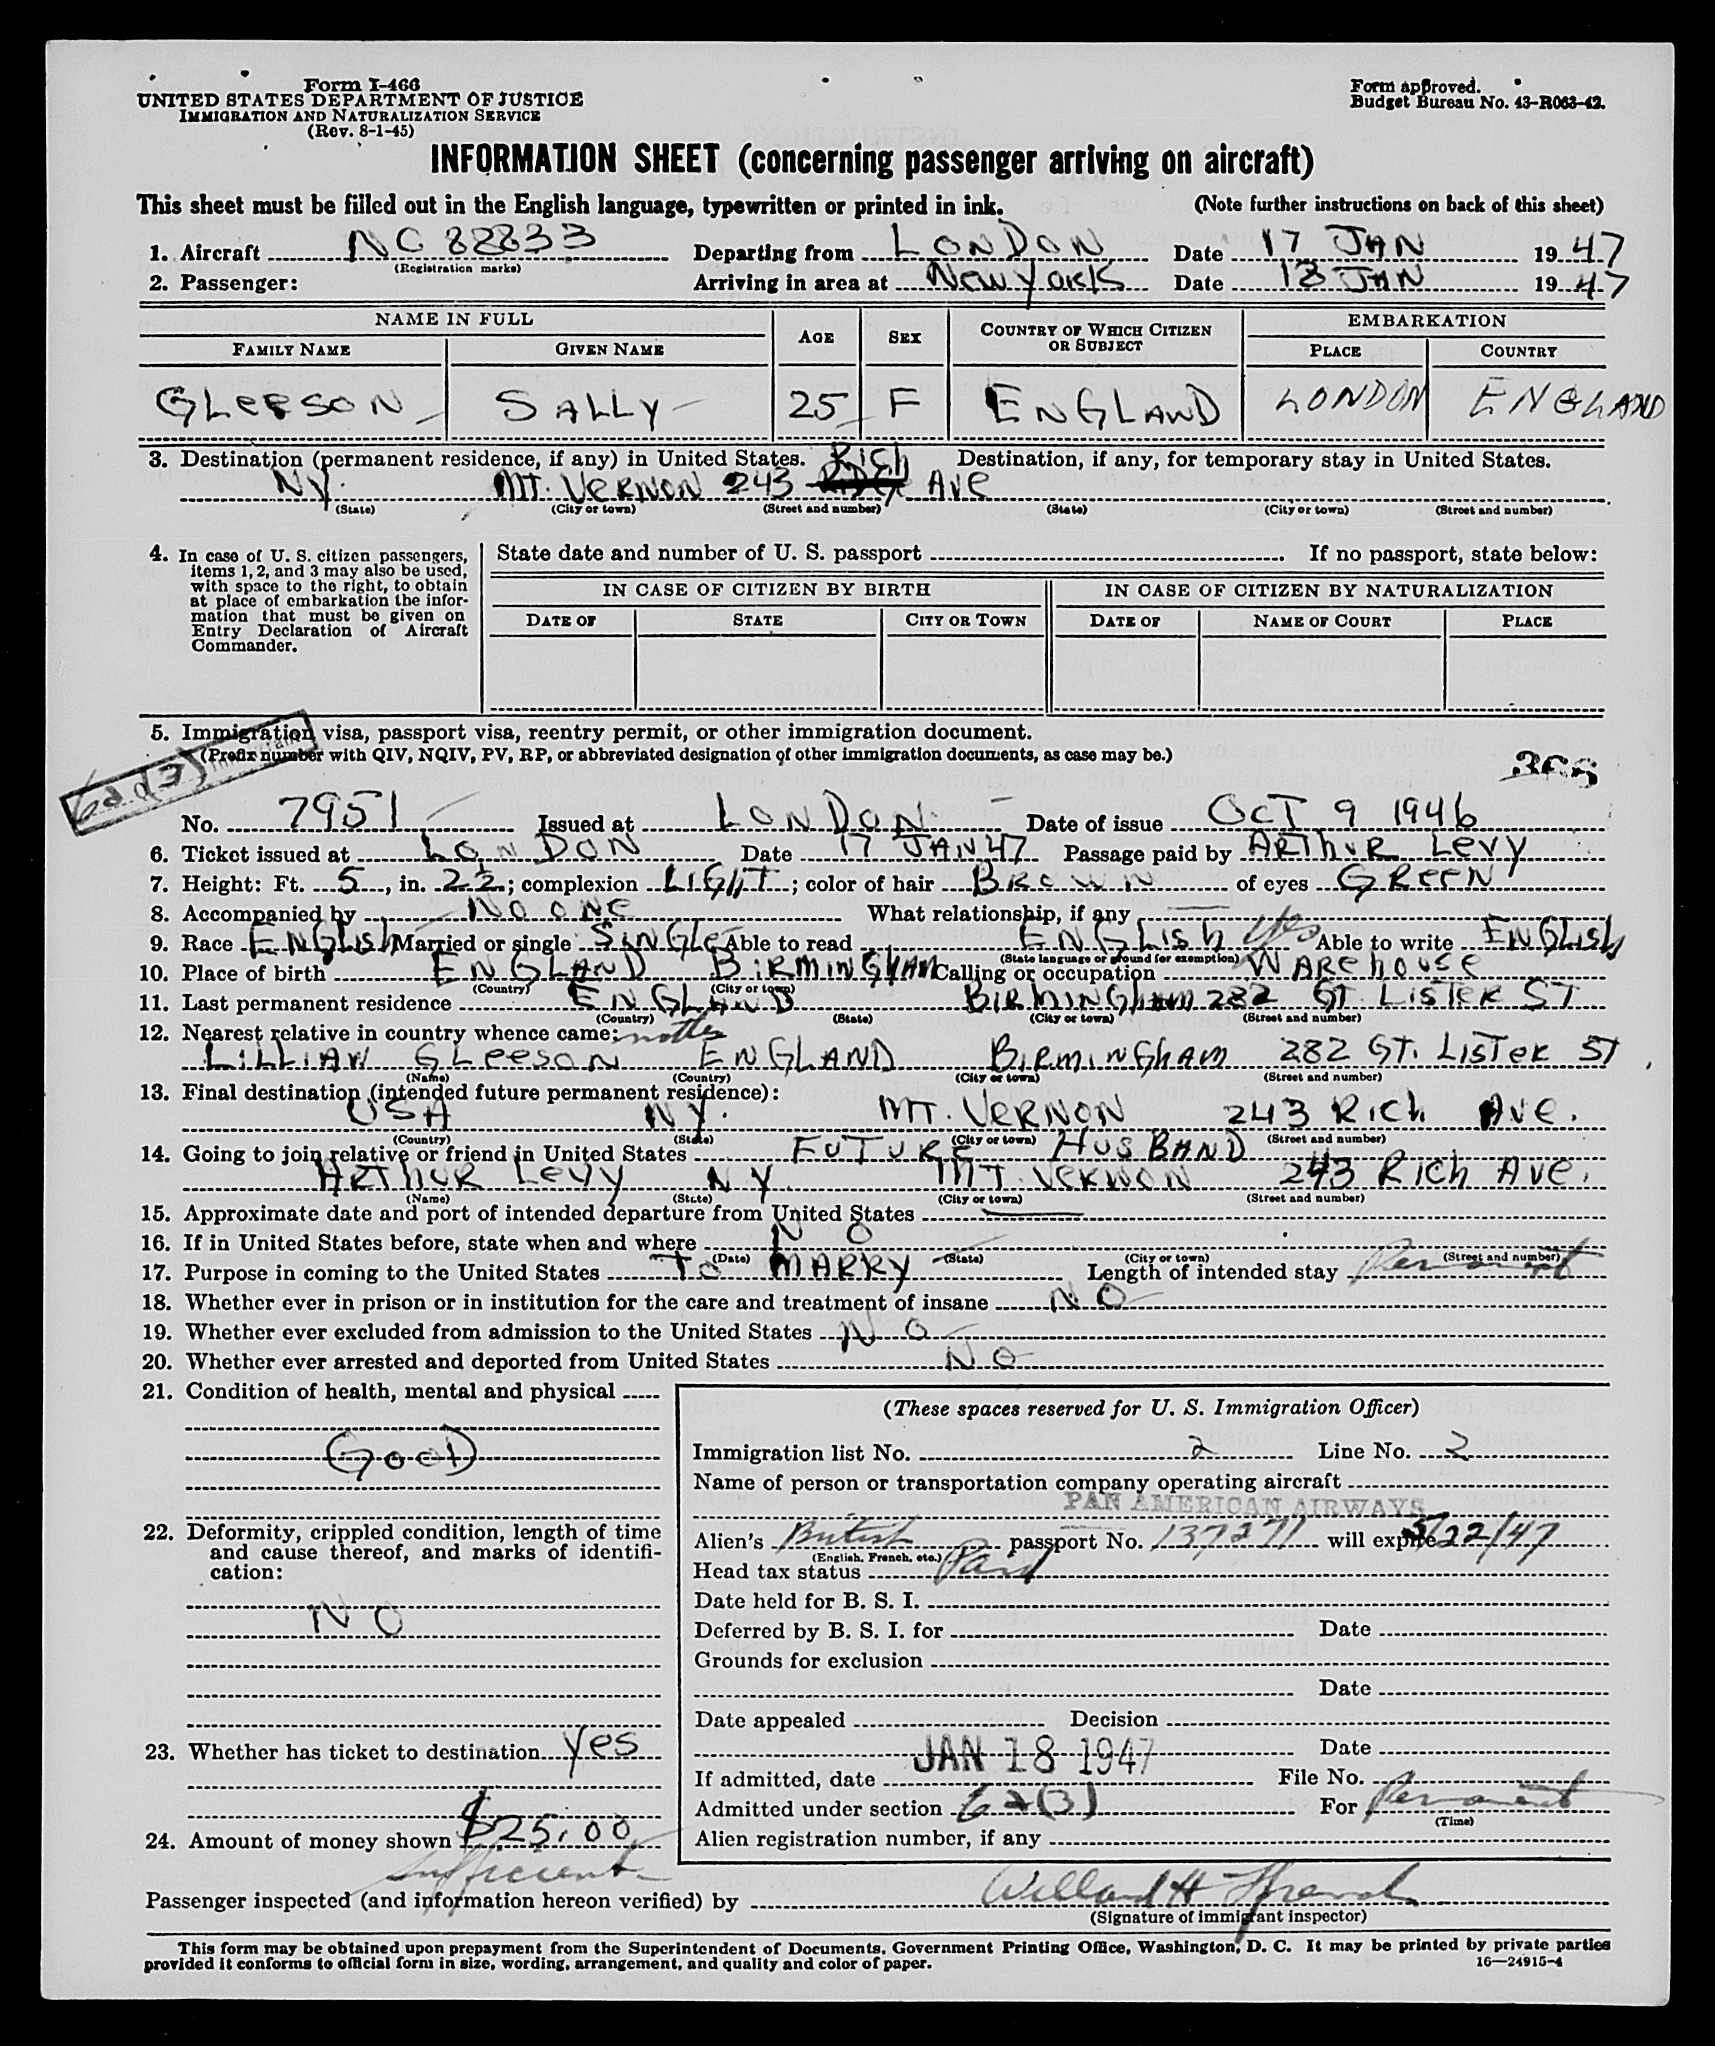 Form I-466
UNITED STATES DEPARTMENT OF JUSTICE
IMMIGRATION AND NATURALIZATION SERVICE
(Rev. 8-1-45)
Form approved.
Budget Bureau No. 43-R063-42.
INFORMATION SHEET (concerning passenger arriving on aircraft)
This sheet must be filled out in the English language, typewritten or printed in ink. (Note further instructions on back of this sheet)
1. Aircraft NC 88833 Departing from LONDON Date 17 JAN 1947
(Registration marks)
2. Passenger: Arriving in area at New York Date 18 JAN 1947
NAME IN FULL AGE SEX COUNTRY OF WHICH CITIZEN OR SUBJECT EMBARKATION
FAMILY NAME GIVEN NAME PLACE COUNTRY
GLEESON SALLY 25 F ENGLAND LONDON ENGLAND
3. Destination (permanent residence, if any) in United States. Destination, if any, for temporary stay in United States.
NY. MT. VERNON 243 Rich AVE
(State) (City or town) (Street and number) (State) (City or town) (Street and number)
4. In case of U. S. citizen passengers, items 1, 2, and 3 may also be used, with space to the right, to obtain at place of embarkation the information that must be given on Entry Declaration of Aircraft Commander.
State date and number of U. S. passport If no passport, state below:
IN CASE OF CITIZEN BY BIRTH IN CASE OF CITIZEN BY NATURALIZATION
DATE OF STATE CITY OR TOWN DATE OF NAME OF COURT PLACE
5. Immigration visa, passport visa, reentry permit, or other immigration document.
(Prefix number with QIV, NQIV, PV, RP, or abbreviated designation of other immigration documents, as case may be.)
366
No. 7951 Issued at LONDON Date of issue OCT 9 1946
6. Ticket issued at LONDON Date 17 JAN 47 Passage paid by ARTHUR LEVY
7. Height: Ft. 5, in. 2½; complexion LIGHT; color of hair BROWN of eyes GREEN
8. Accompanied by NO ONE What relationship, if any
9. Race ENGLISH Married or single SINGLE Able to read ENGLISH yes Able to write ENGLISH
(State language or ground for exemption)
10. Place of birth ENGLAND BIRMINGHAM Calling or occupation WAREHOUSE
(Country) (City or town)
11. Last permanent residence ENGLAND BIRMINGHAM 282 GT. LISTER ST
(Country) (State) (City or town) (Street and number)
12. Nearest relative in country whence came: mother
LILLIAN GLEESON ENGLAND BIRMINGHAM 282 GT. LISTER ST
(Name) (Country) (City or town) (Street and number)
13. Final destination (intended future permanent residence):
USA NY. MT. VERNON 243 RICH AVE.
(Country) (State) (City or town) (Street and number)
14. Going to join relative or friend in United States FUTURE HUSBAND
ARTHUR LEVY NY. MT. VERNON 243 RICH AVE.
(Name) (State) (City or town) (Street and number)
15. Approximate date and port of intended departure from United States
16. If in United States before, state when and where NO
(Date) (State) (City or town) (Street and number)
17. Purpose in coming to the United States TO MARRY Length of intended stay Permanent
18. Whether ever in prison or in institution for the care and treatment of insane NO
19. Whether ever excluded from admission to the United States NO
20. Whether ever arrested and deported from United States NO
21. Condition of health, mental and physical
GOOD
22. Deformity, crippled condition, length of time and cause thereof, and marks of identification:
NO
23. Whether has ticket to destination Yes
24. Amount of money shown $25.00
sufficient
(These spaces reserved for U. S. Immigration Officer)
Immigration list No. 2 Line No. 2
Name of person or transportation company operating aircraft
PAN AMERICAN AIRWAYS
Alien's British passport No. 137271 will expire 5/22/47
(English, French, etc.)
Head tax status Paid
Date held for B. S. I.
Deferred by B. S. I. for Date
Grounds for exclusion
Date
Date appealed Decision
Date
If admitted, date JAN 18 1947 File No.
Admitted under section 6a(3) For Permanent
(Time)
Alien registration number, if any
Passenger inspected (and information hereon verified) by Willard H
(Signature of immigrant inspector)
This form may be obtained upon prepayment from the Superintendent of Documents, Government Printing Office, Washington, D. C. It may be printed by private parties
provided it conforms to official form in size, wording, arrangement, and quality and color of paper.
16—24915-4